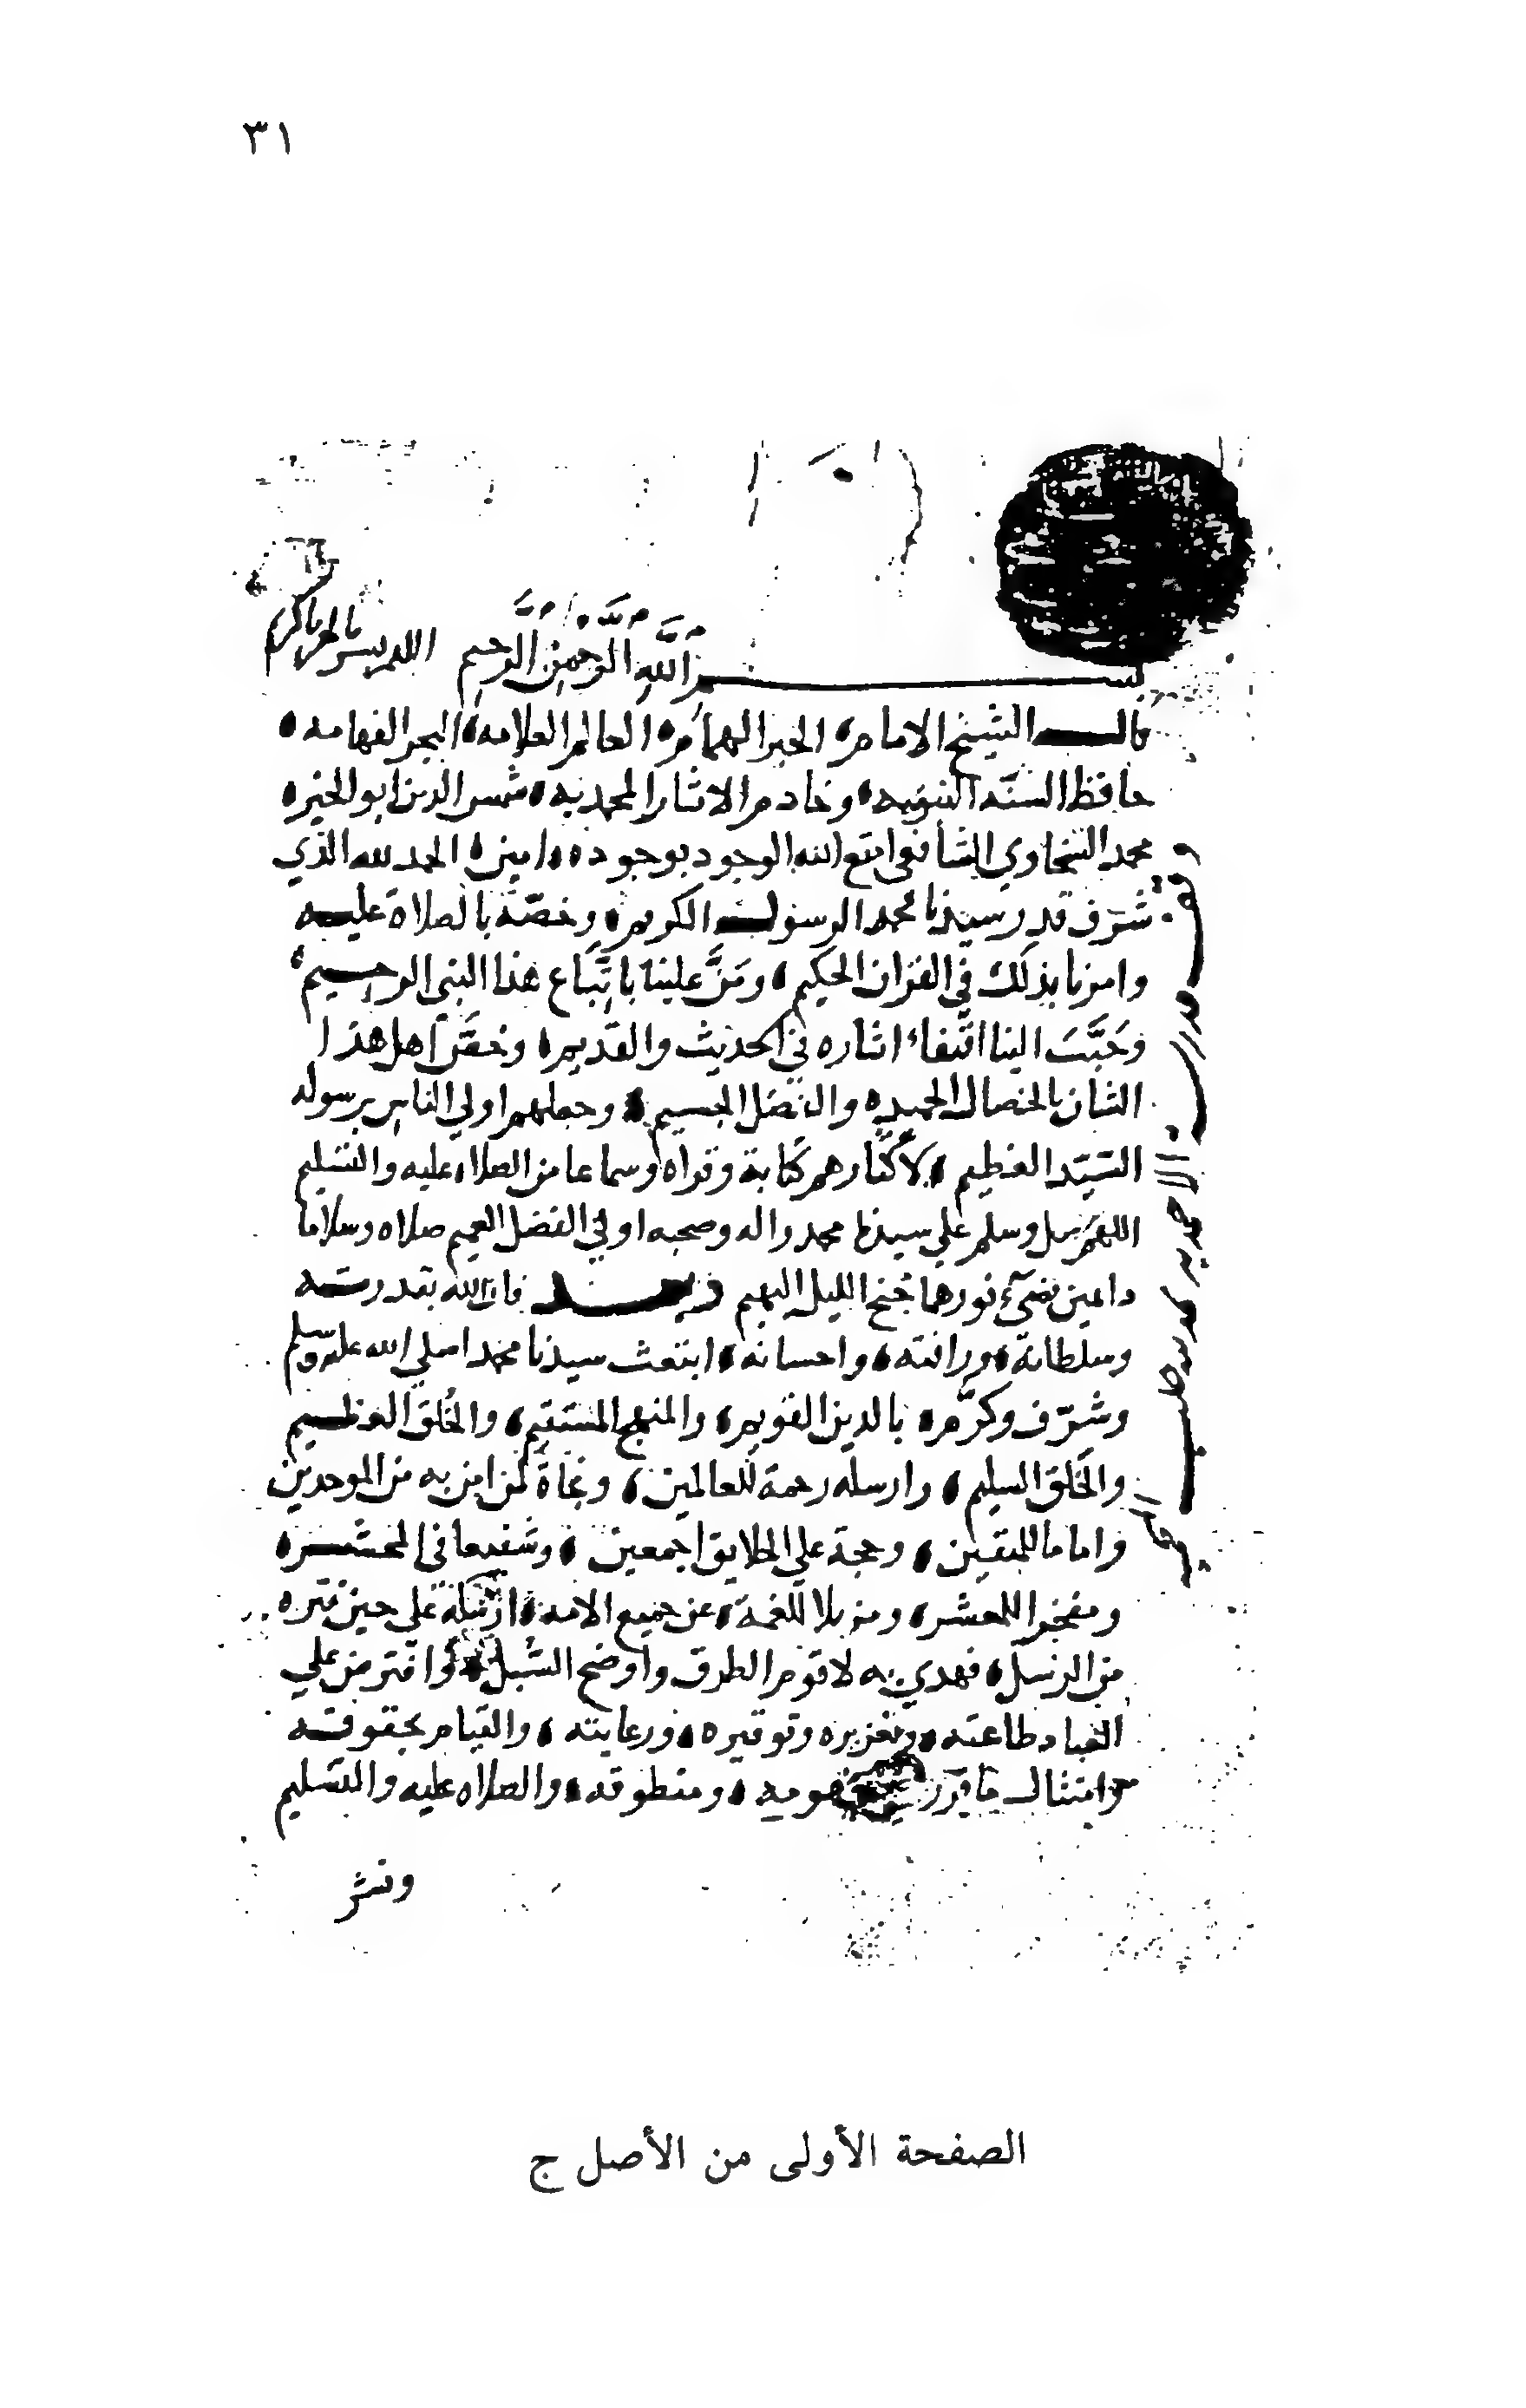 ٣١
بسم الله الرحمن الرحيم اللهم يسر يا كريم
قال الشيخ الامام، الحبر الهمام، العالم العلامه، البحر الفهامه،
حافظ السنه النبويه، وخادم الاثار المحمديه، شمس الدين ابو الخير،
محمد السخاوي الشافعى امتع الله الوجود بوجوده، امين، الحمد لله الذي
شرّف قدر سيدنا محمد الرسول الكريم، وخصّه بالصلاة عليه
وامرنا بذلك في القران الحكيم، ومَنَّ علينا باتّباع هذا النبي الرحيم،
وحَبَّبَ الينا اقتفاء اثاره في الحديث والقديم، وخصَّ اهل هذا
الشان بالخصال الحميده والفضل الجسيم، وجعلهم اولي الناس برسوله
السّيّد العظيم، لاكثارهم كتابة وقراه وسماعا من الصلاه عليه والتسليم
اللهم صل وسلم علي سيدنا محمد واله وصحبه اولي الفضل العميم صلاه وسلاما
دايمين يضيء نورهما جنح الليل البهيم وبعد فان الله بقدرته
وسلطانه، ورافته، واحسانه، ابتعث سيدنا محمدا صلى الله عليه وسلم
وشرّف وكرّم، بالدين القويم، والمنهج المستقيم، والخُلق العظيم
والخَلق السليم، وارسله رحمة للعالمين، ونجاة لمن امن به من الموحدين
واماما للمتقين، وحجة علي الخلايق اجمعين، وشفيعا فى المحشر،
ومفخرا للمعشر، ومزيلا للغمة، عن جميع الامه، ارسله علي حين فتره
من الرسل، فهدي به لاقوم الطرق واوضح السُبل، وافترض علي
العباد طاعته، وتعزيره وتوقيره، ورعايته، والقيام بحقوقه
وامتثال ما قرر مفهومه، ومنطوقه، والصلاه عليه والتسليم
ونشر
الصفحة الأولى من الأصل ج